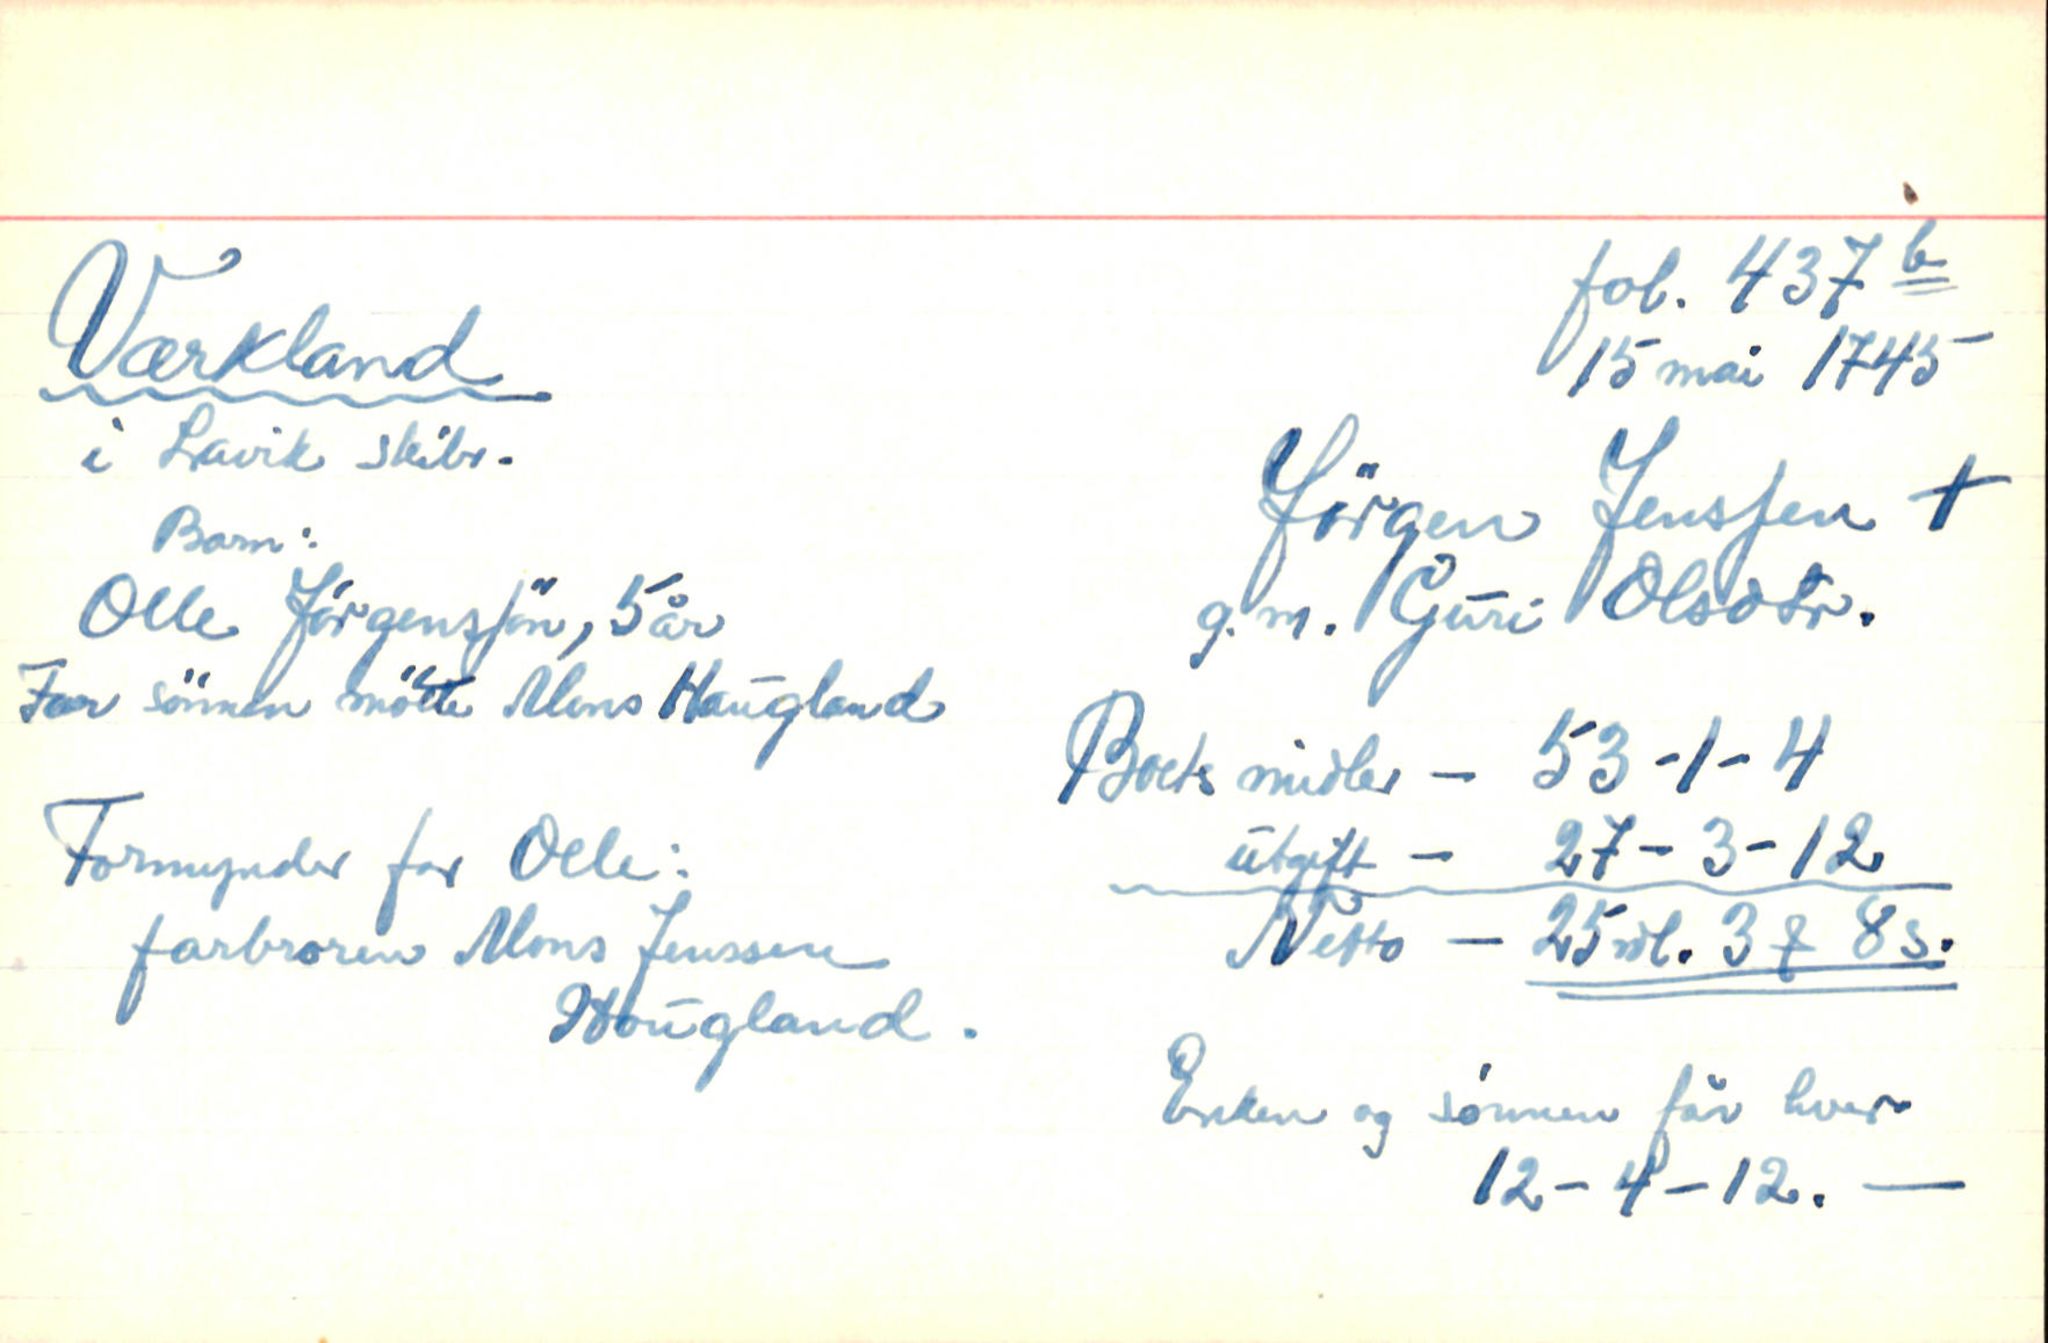 Værkland
i Lavik skibr.
Barn:
Olle Jörgensøn, 5 år
For sönnen mötte Mons Haugland
Formynder for Olle:
farbroren Mons Jenssen
Hougland.
fol. 437 b
15 mai 1745
Jörgen Jenssen +
g.m. Guri Olsdtr.
Boets midler - 53-1-4
utgift - 27-3-12
Netto - 25 rdl. 3 8 s.
Enken og sönnen får hver
12-4-12. —